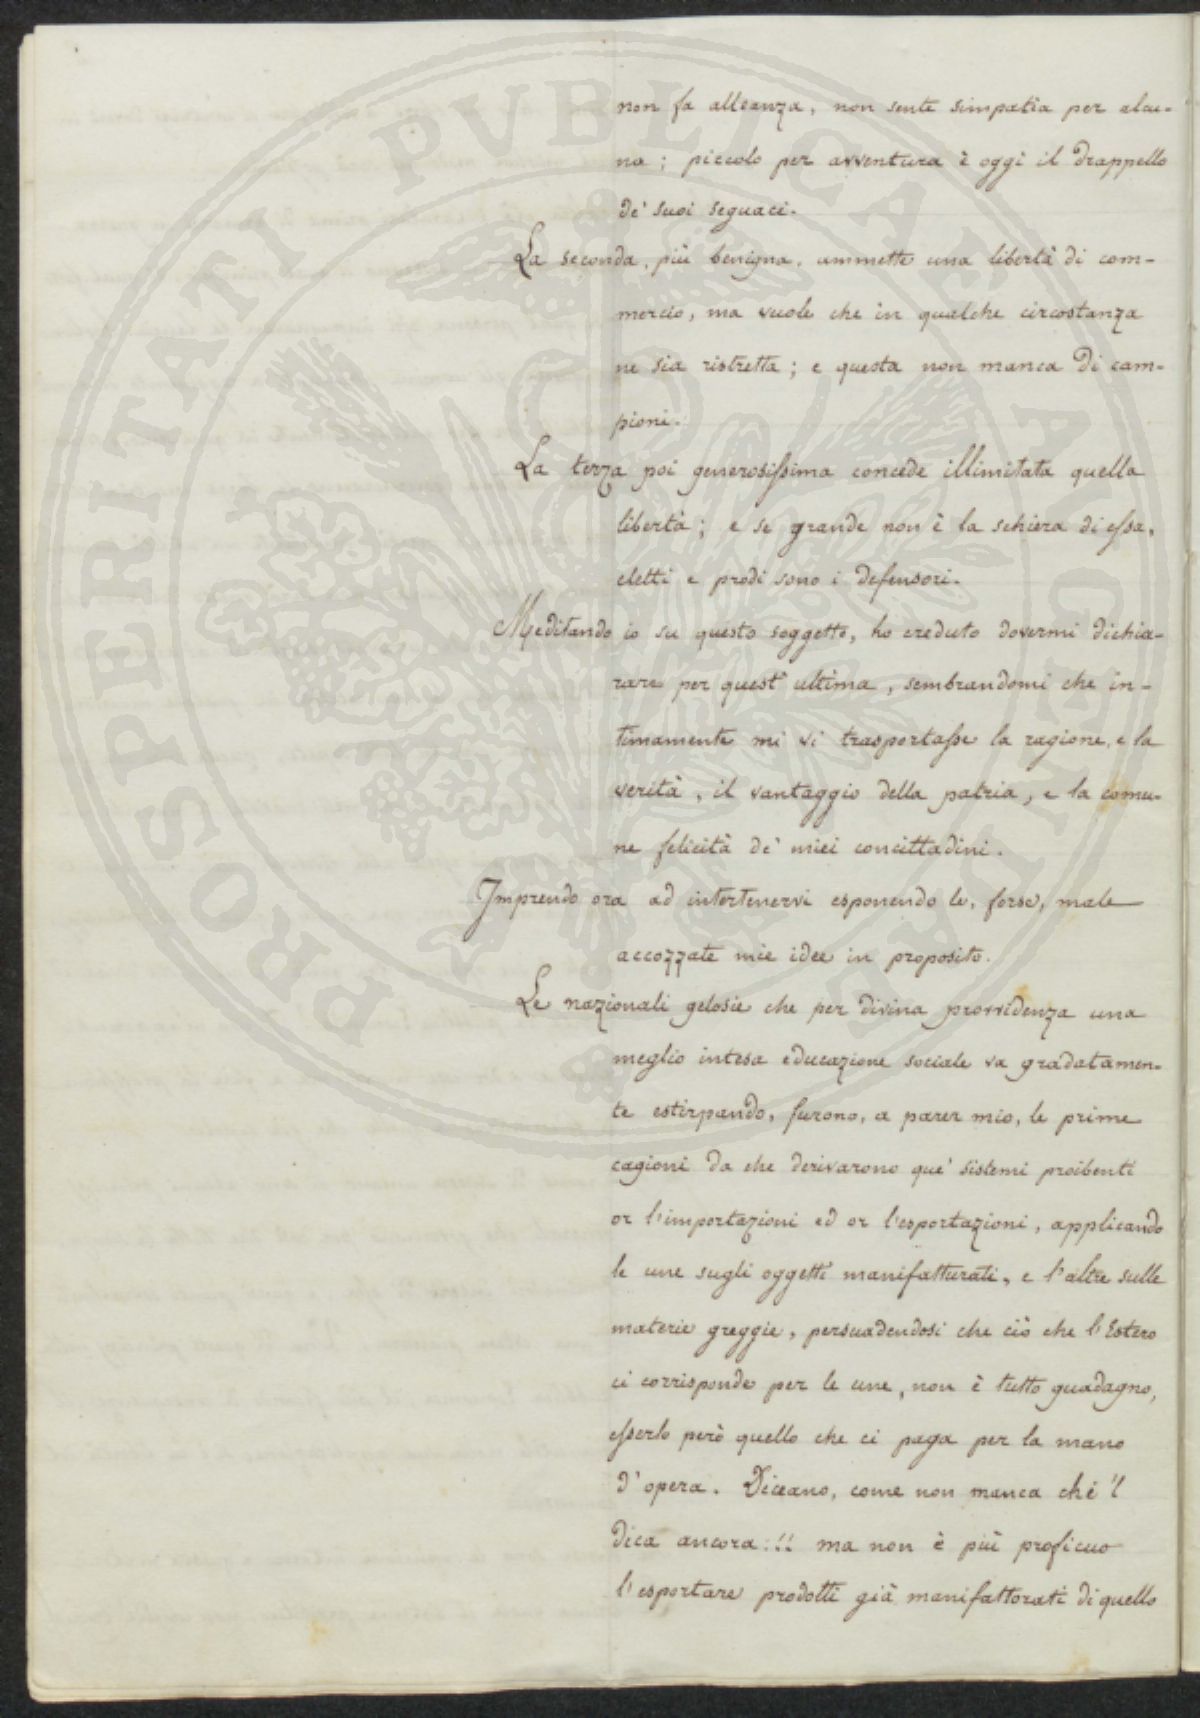 non fa alleanza, non sente simpatia per alcu-
na; piccolo per avventura è oggi il drappello
de' suoi seguaci.
La seconda, più benigna, ammette una libertà di com-
mercio, ma vuole che in qualche circostanza
ne sia ristretta; e questa non manca di cam-
pioni.
La terza poi generosissima concede illimitata quella
libertà; e se grande non è la schiera di essa,
eletti e prodi sono i defensori.
Meditando io su questo soggetto, ho creduto dovermi dichia-
rare per quest' ultima, sembrandomi che in-
timamente mi vi trasportasse la ragione, e la
verità, il vantaggio della patria, e la comu-
ne felicità de' miei concittadini.
Imprendo ora ad intertenervi esponendo le, forse, male
accozzate mie idee in proposito.
Le nazionali gelosie che per divina provvidenza una
meglio intesa educazione sociale va gradatamen-
te estirpando, furono, a parer mio, le prime
cagioni da che derivarono que' sistemi proibenti
or l'importazioni ed or l'esportazioni, applicando
le une sugli oggetti manifatturati, e l'altre sulle
materie greggie, persuadendosi che ciò che l'Estero
ci corrisponde per le une, non è tutto guadagno,
esserlo però quello che ci paga per la mano
d'opera. Diceano, come non manca chi 'l
dica ancora!!! ma non è più proficuo
l'esportare prodotti già manifattorati di quello
PROSPERITATI PVBLICAE AVGENDAE